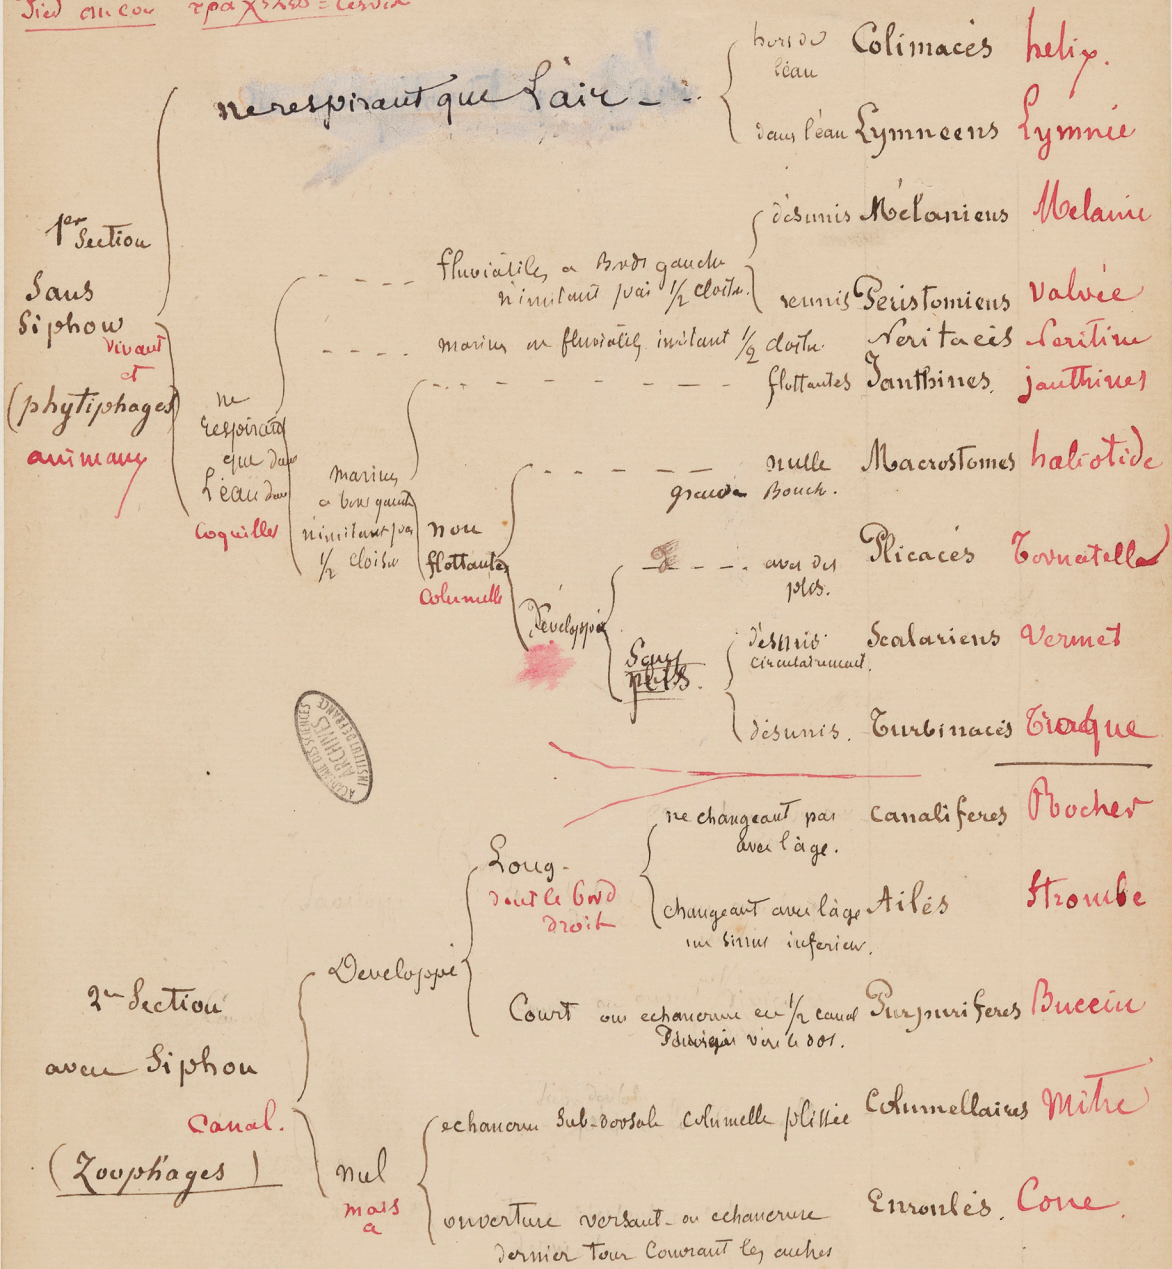 Pied ou cou
ne respirant que L'air
hors de
l'eau
Colimacés helix.
dans l'eau Lymneens Lymnée
1er Section
Sans
Siphon
vivant
et
(phytiphages)
animaux
ne
respirant
que dans
L'eau dans
Coquilles
fluviatiles a Bord gauche
n'imitant pas 1/2 cloison.
désunis Mélaniens Melanie
reunis Peristomiens valvée
marines ou fluviatiles imitant 1/2 cloison Neritacés Neritine
marines
a bord gauche
n'imitant pas
1/2 cloison
flottantes Janthines. janthines
non
flottantes
Columelle
nulle
grande Bouch.
Macrostomes haliotide
Développée
avec des
plis.
Plicacés Tornatelle
Sans
plis.
désunis
circulairement.
Scalariens Vermet
désunis. Turbinacés Troque
ACADEMIE DES SCIENCES
ARCHIVES
INSTITUT DE FRANCE
2me Section
avec Siphon
Canal.
(Zoophages)
Developpé
Long-
dont le bord
droit
ne changeant pas
avec l'âge.
Canaliferes Rocher
changeant avec l'âge
un sinus inferieur.
Ailés Strombe
Court ou echancrure en 1/2 canal
vers le dos.
Purpuriferes Buccin
nul
mais
a
echancrure Sub-dorsale columelle plissée Columellaires Mitre
ouverture versant ou echancrure
dernier tour Couvrant les autres
Enroulés. Cone.